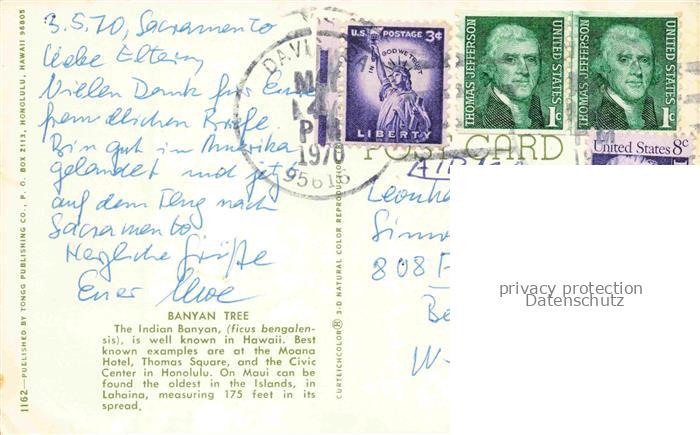 3.5.70, Sacramento
Liebe Eltern,
Vielen Dank für Eure
freundlichen Briefe
Bin gut in Amerika
gelandet und jetzt
auf dem Flug nach
Sacramento
Herzliche Grüße
Euer Uwe
BANYAN TREE
The Indian Banyan, (ficus bengalen-
sis), is well known in Hawaii. Best
known examples are at the Moana
Hotel, Thomas Square, and the Civic
Center in Honolulu. On Maui can be
found the oldest in the Islands, in
Lahaina, measuring 175 feet in its
spread.
1162—PUBLISHED BY TONGG PUBLISHING CO., P. O. BOX 2113, HONOLULU, HAWAII 96805
CURTEICHCOLOR® 3-D NATURAL COLOR REPRODUCTION
U.S. POSTAGE 3¢
IN GOD WE TRUST
LIBERTY
DAVI
PM
1970
95616
THOMAS JEFFERSON
UNITED STATES
1c
THOMAS JEFFERSON
UNITED STATES
1c
United States 8c
POST CARD
Leonha
Simo
808 F
Be
W-
privacy protection
Datenschutz